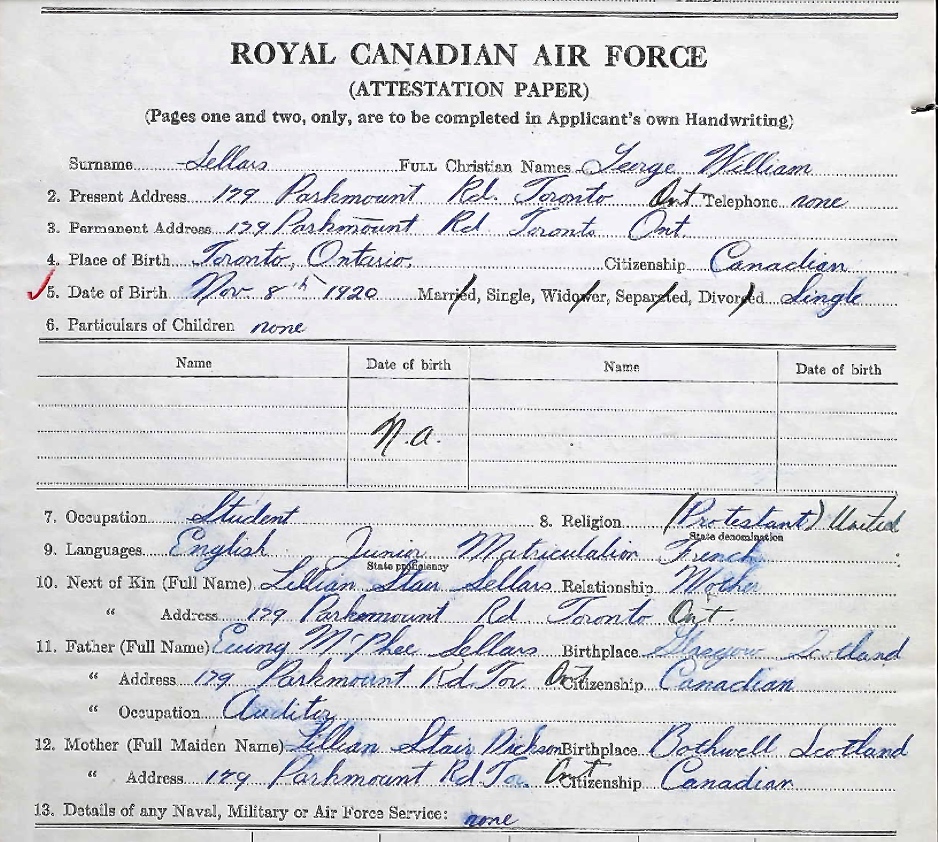 ROYAL CANADIAN AIR FORCE
(ATTESTATION PAPER)
(Pages one and two, only, are to be completed in Applicant's own Handwriting)
Surname Sellars FULL Christian Names George William
2. Present Address 179 Parkmount Rd. Toronto Ont Telephone none
3. Permanent Address 179 Parkmount Rd Toronto Ont
4. Place of Birth Toronto, Ontario. Citizenship Canadian
5. Date of Birth Nov. 8th 1920 Married, Single, Widower, Separated, Divorced Single
6. Particulars of Children none
Name Date of birth Name Date of birth
N.a.
7. Occupation Student 8. Religion (Protestant) United
State denomination
9. Languages English Junior Matriculation French
State proficiency
10. Next of Kin (Full Name) Lillian Stair Sellars Relationship Mother
" Address 179 Parkmount Rd Toronto Ont.
11. Father (Full Name) Ewing McPhee Sellars Birthplace Glasgow Scotland
" Address 179 Parkmount Rd. Tor. Ont Citizenship Canadian
" Occupation Auditor
12. Mother (Full Maiden Name) Lillian Stair Dickson Birthplace Bothwell Scotland
" Address 179 Parkmount Rd. To. Ont Citizenship Canadian
13. Details of any Naval, Military or Air Force Service: none